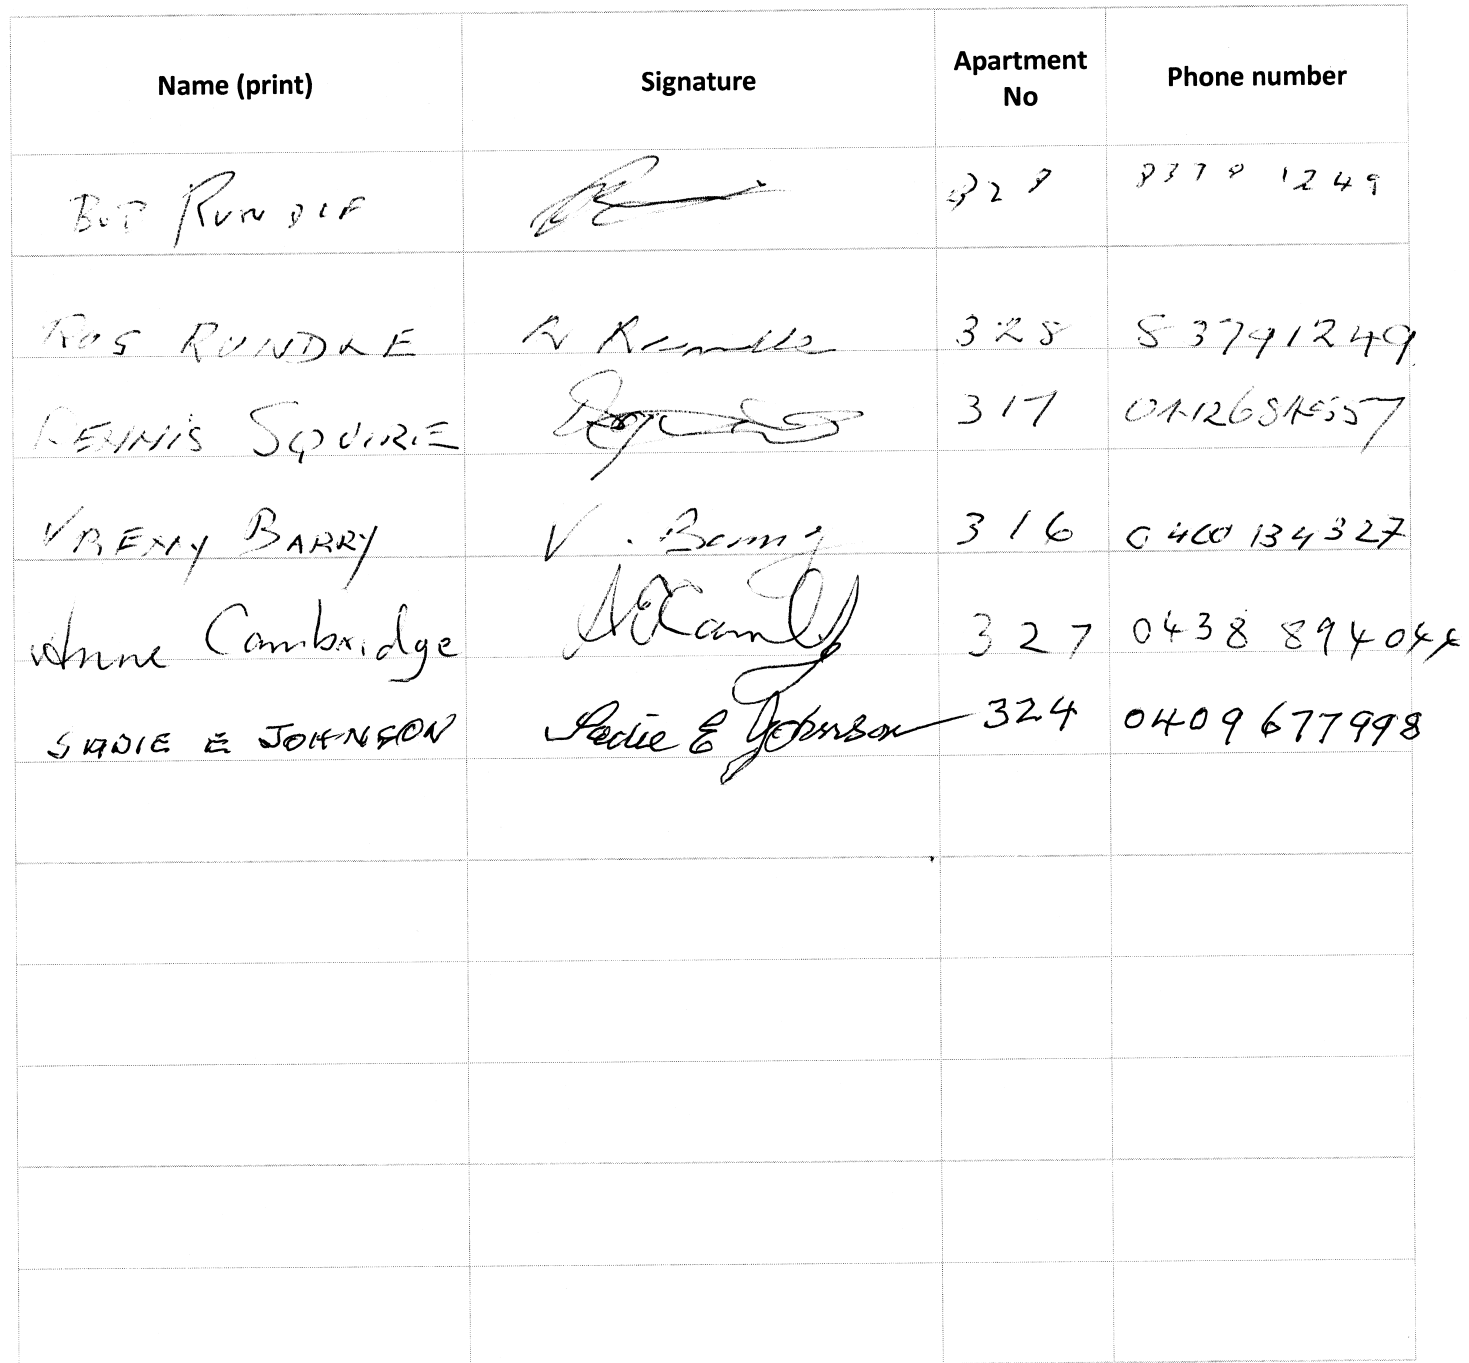 Name (print) Signature Apartment No Phone number
RUNDLE 328 1249
ROS RUNDLE R Rundle 328 83791249
DENNIS SQUIRE 317
BARRY V. Barry 316 0400 134 327
Anne Cambridge 327 0438 894044
SADIE E JOHNSON Sadie E Johnson 324 0409 677998